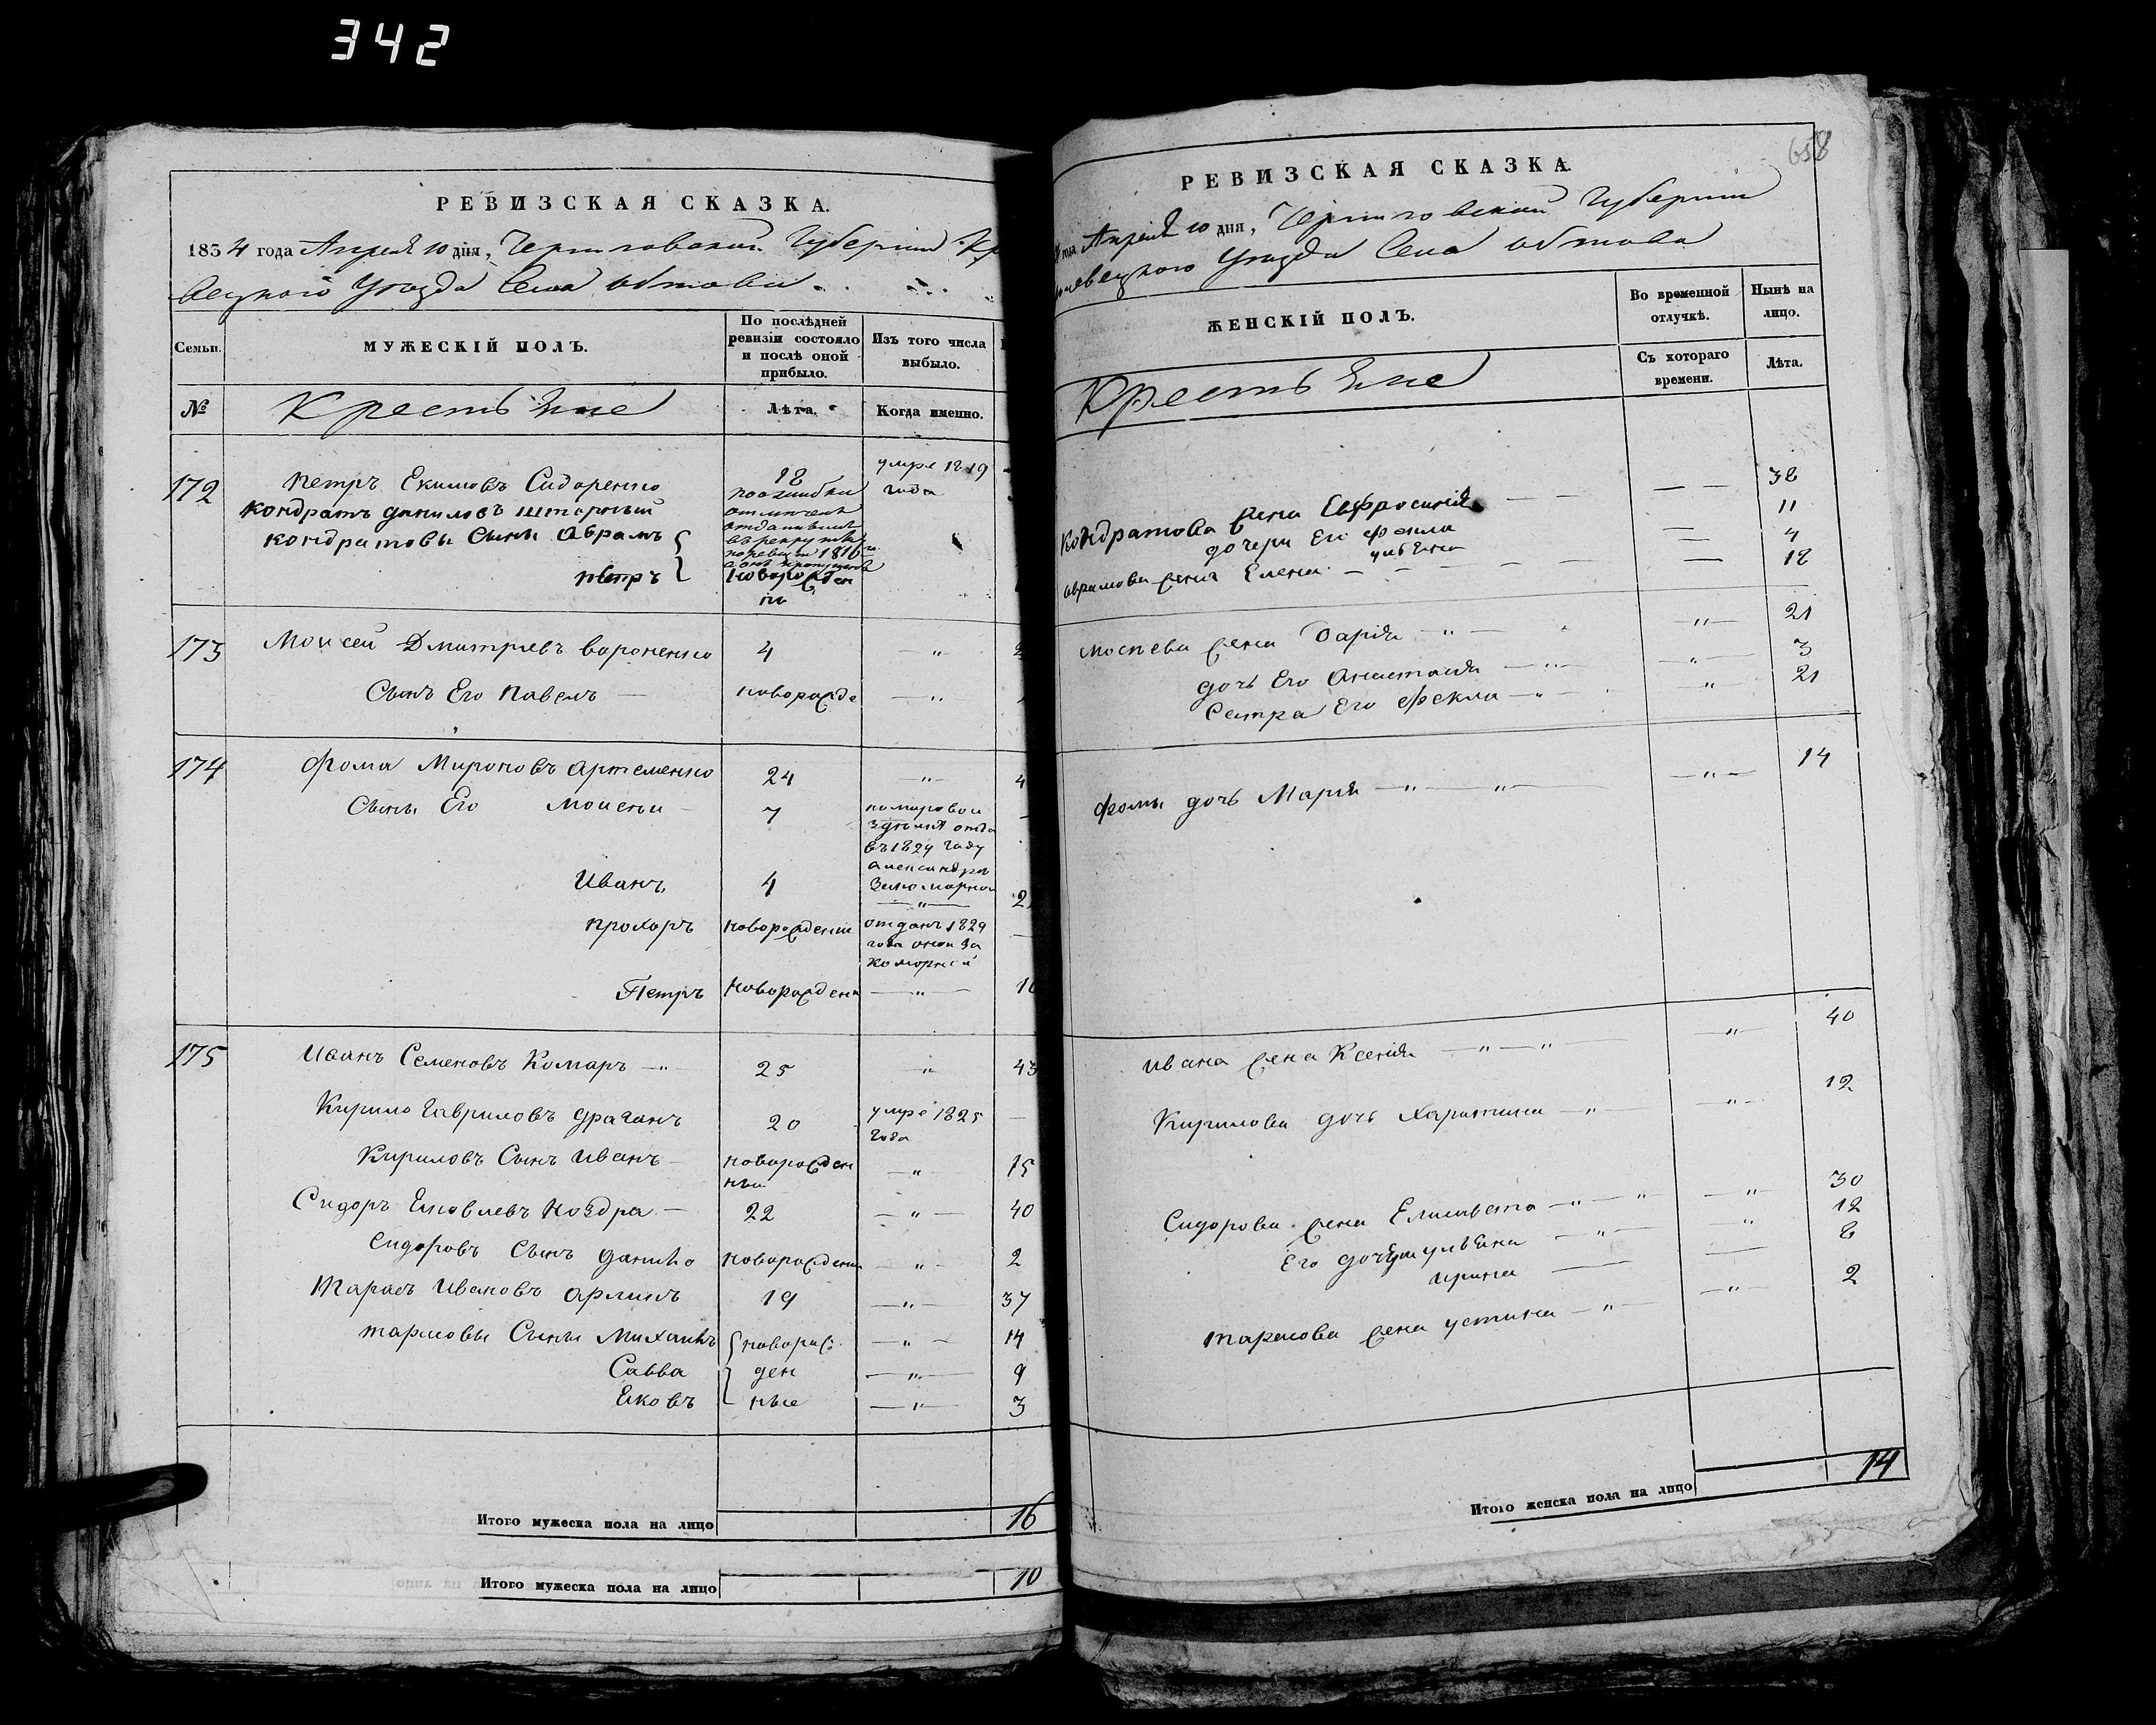 342
РЕВИЗСКАЯ СКАЗКА.
1834 года Апреля 10 дня, Черниговской Губернии Кр
вецкого Уезда Села Обтова
Семьи.
МУЖЕСКІЙ ПОЛЪ.
По послѣдней ревизіи состояло и послѣ оной прибыло.
Изъ того числа выбыло.
№
Крестьяне
Лѣта.
Когда именно.
172
Петръ Екимовъ Сидоренко
18
умре 1819 года
Кондратъ Даниловъ
Кондратовы Сыны Аврамъ
поошибки
1816
Петръ
новорожден
173
Моисей Дмитриевъ Вороненко
4
Сынъ Его Павелъ
новорожде
174
Фома Мироновъ Артеменко
24
4
Сыны Его Моисей
7
въ 1824 году
Иванъ
4
2
Прохоръ
новорожденни
отданъ 1829 года
Петръ
новорожден
175
Иванъ Семеновъ Комаръ
25
43
Кирило Гавриловъ Драганъ
20
умре 1825 года
Кириловъ Сынъ Иванъ
новорожден
15
Сидоръ Яковлевъ Ноздра
22
40
Сидоровъ Сынъ Данило
новорожденни
2
Тарасъ Ивановъ
19
37
Тарасовы Сыны Михаилъ
новорож
14
Савва
ден
9
Яковъ
ные
3
Итого мужеска пола на лицо
16
Итого мужеска пола на лицо
10
658
РЕВИЗСКАЯ СКАЗКА.
года Апреля 10 дня, Черниговской Губернии
левецкого Уезда Села Обтова
ЖЕНСКІЙ ПОЛЪ.
Во временной отлучкѣ.
Нынѣ на лицо.
Съ котораго времени.
Лѣта.
Крестьяне
Кондратова жена Евфросиния
38
дочери Его Фекла
11
Ульяна
4
Аврамова жена Елена
18
Моисеева жена Дария
21
дочь Его Анастасия
3
Сестра Его Фекла
21
Фомы дочь Мария
14
Ивана жена Ксения
40
Кирилова дочь Харитина
12
Сидорова жена Елисавета
30
Его дочери Ульяна
12
Ирина
8
Тарасова жена Устина
2
Итого женска пола на лицо
14